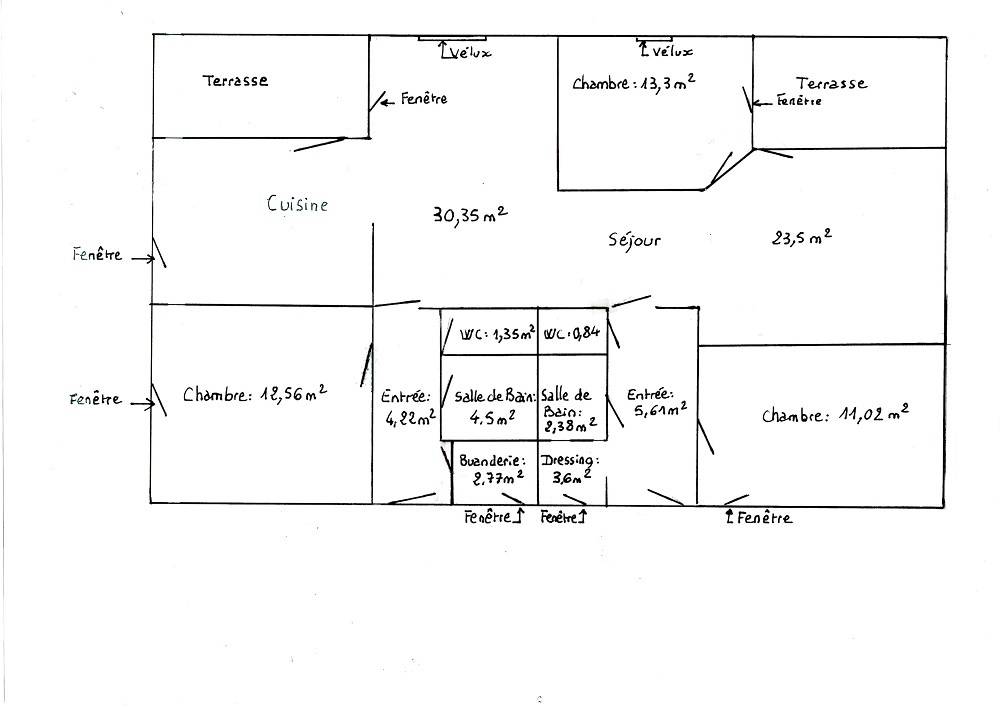 Vélux
Vélux
Terrasse
Chambre: 13,3 m²
Terrasse
Fenêtre
Fenêtre
Cuisine
30,35 m²
Séjour
23,5 m²
Fenêtre
WC: 1,35 m²
WC: 0,84
Fenêtre
Chambre: 12,56 m²
Entrée:
4,22 m²
Salle de Bain:
4,5 m²
Salle de
Bain:
2,38 m²
Entrée:
5,61 m²
Chambre: 11,02 m²
Buanderie:
2,77 m²
Dressing:
3,6 m²
Fenêtre
Fenêtre
Fenêtre